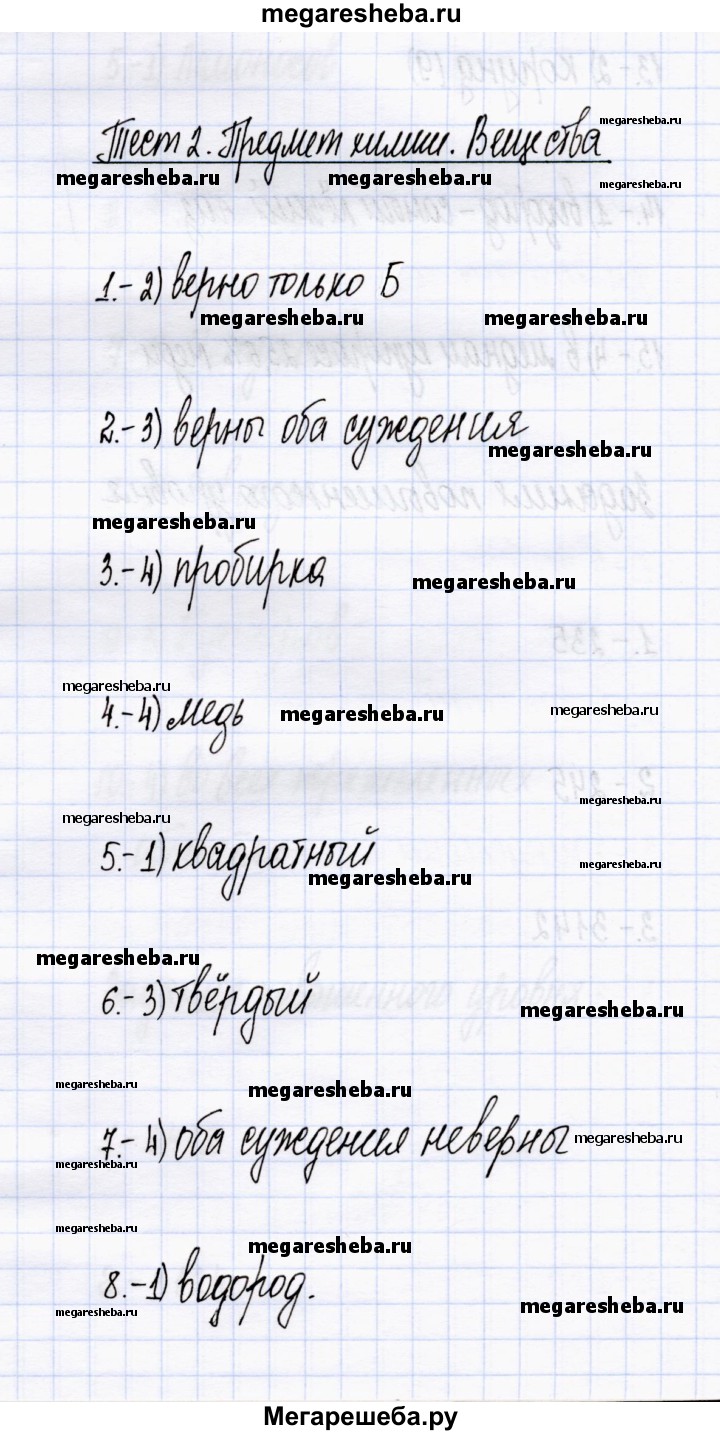 megaresheba.ru
megaresheba.ru
Тест 2. Предмет химии. Вещества
megaresheba.ru megaresheba.ru megaresheba.ru
1.-2) верно только Б
megaresheba.ru megaresheba.ru
2.-3) верны оба суждения
megaresheba.ru
megaresheba.ru
3.-4) пробирка
megaresheba.ru
megaresheba.ru
4.-4) медь megaresheba.ru megaresheba.ru
megaresheba.ru
megaresheba.ru
5.-1) квадратный
megaresheba.ru
megaresheba.ru
megaresheba.ru
6.-3) твёрдый
megaresheba.ru
megaresheba.ru megaresheba.ru
7.-4) оба суждения неверны megaresheba.ru
megaresheba.ru
megaresheba.ru
megaresheba.ru
8.-1) водород.
megaresheba.ru megaresheba.ru
Мегарешеба.ру